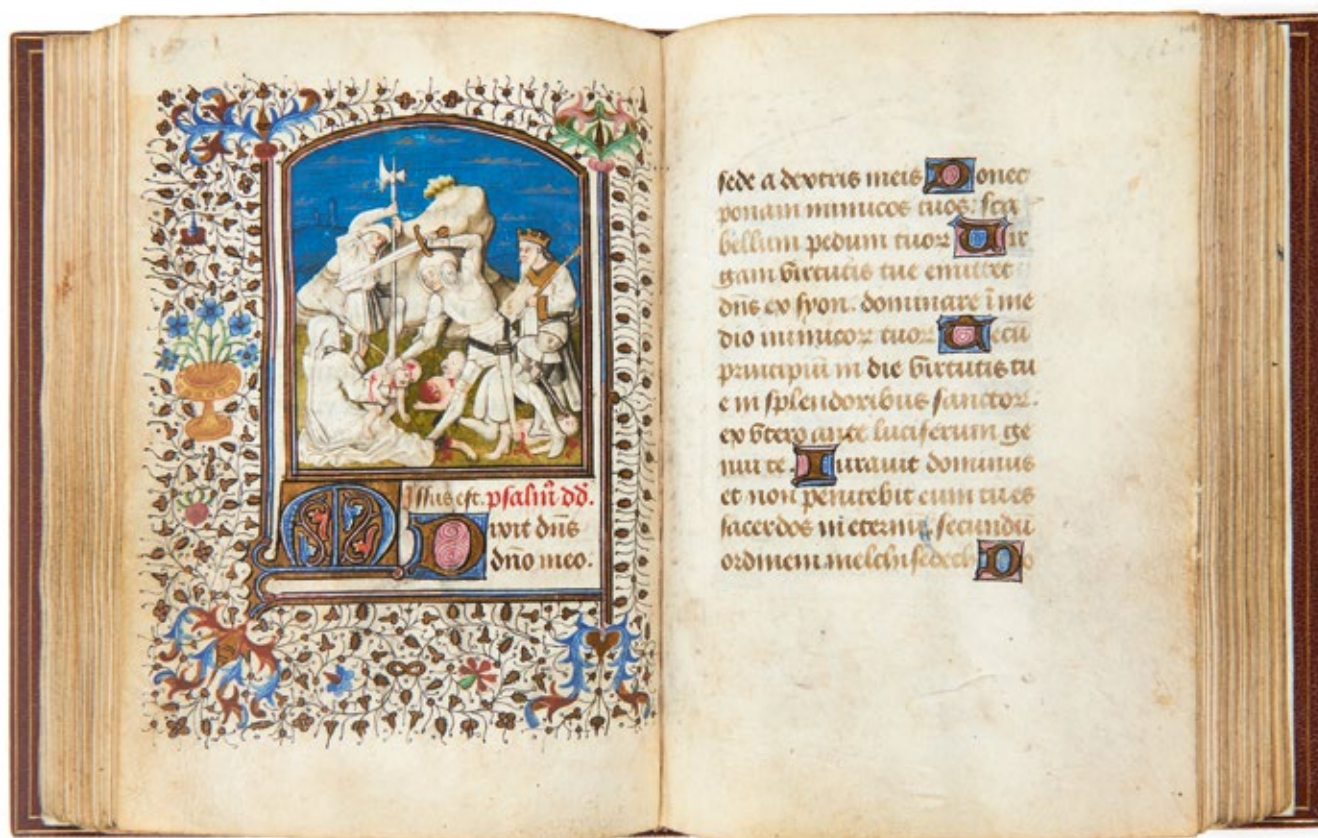 Missus est. psalm̄ dd̄.
Dixit dn̄s
dn̄o meo.
sede a dextris meis Donec
ponam inimicos tuos: sca
bellum pedum tuoꝝ Vir
gam virtutis tue emittet
dn̄s ex syon. dominare ī me
dio inimicoꝝ tuoꝝ Tecū
principiū in die virtutis tu
e in splendoribus sanctoꝝ.
ex vtero ante luciferum ge
nui te. Iurauit dominus
et non penitebit eum tu es
sacerdos in eternū secundū
ordinem melchisedech Do